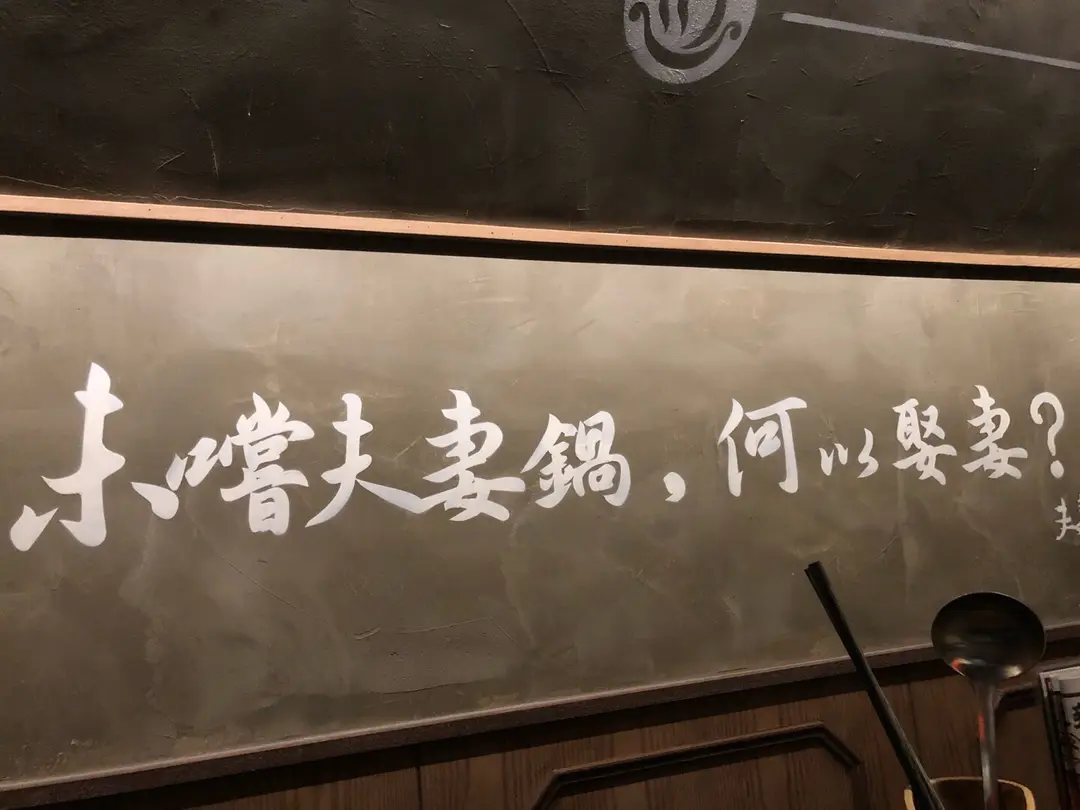 未嚐夫妻鍋，何以娶妻？